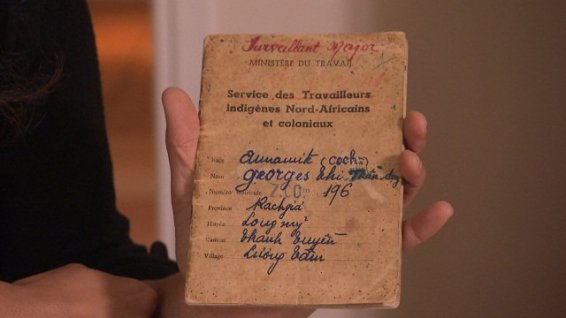 Surveillant Major
MINISTÈRE DU TRAVAIL
Service des Travailleurs
indigènes Nord-Africains
et coloniaux
Race Annamite (coch:)
Nom georges Khi
Numéro matricule Z.O.m 196
Province Rachgiá
Huyện Long mỹ
Canton thanh tuyên
Village Lương tâm